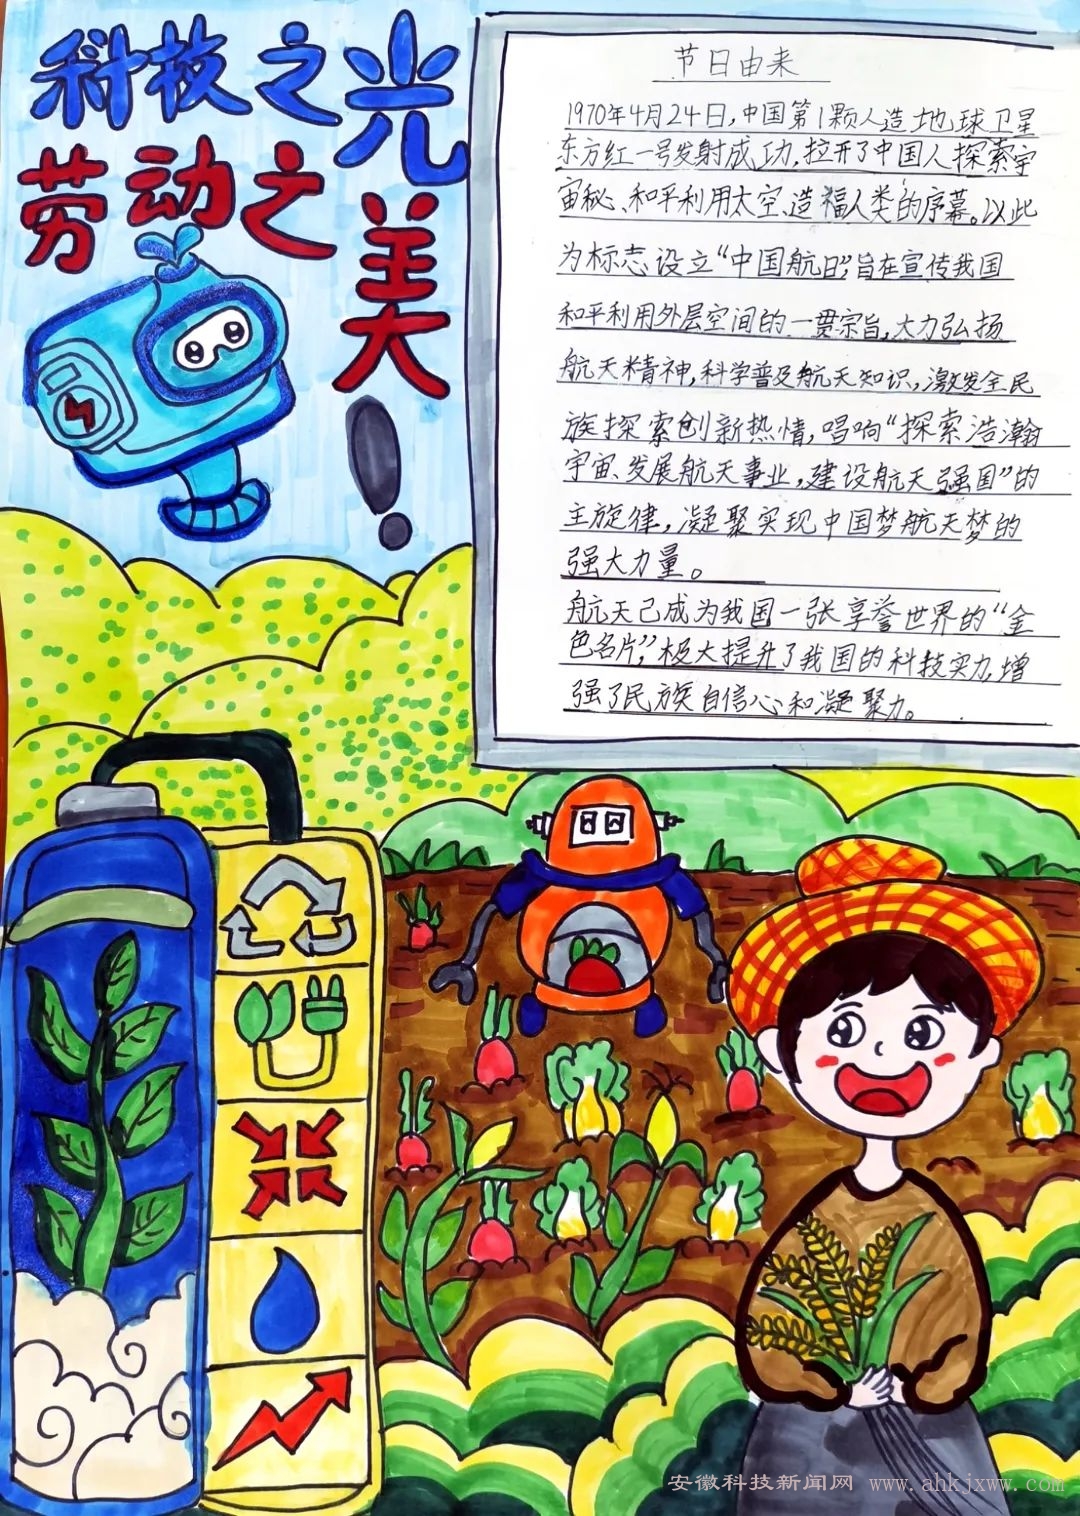 科技之光
劳动之美！
节日由来
1970年4月24日，中国第1颗人造地球卫星
东方红一号发射成功，拉开了中国人探索宇
宙秘、和平利用太空、造福人类的序幕。以此
为标志设立“中国航日”，旨在宣传我国
和平利用外层空间的一贯宗旨，大力弘扬
航天精神，科学普及航天知识，激发全民
族探索创新热情，唱响“探索浩瀚
宇宙、发展航天事业，建设航天强国”的
主旋律，凝聚实现中国梦航天梦的
强大力量。
航天已成为我国一张享誉世界的“金
色名片”，极大提升了我国的科技实力，增
强了民族自信心和凝聚力。
安徽科技新闻网 www.ahkjxww.com